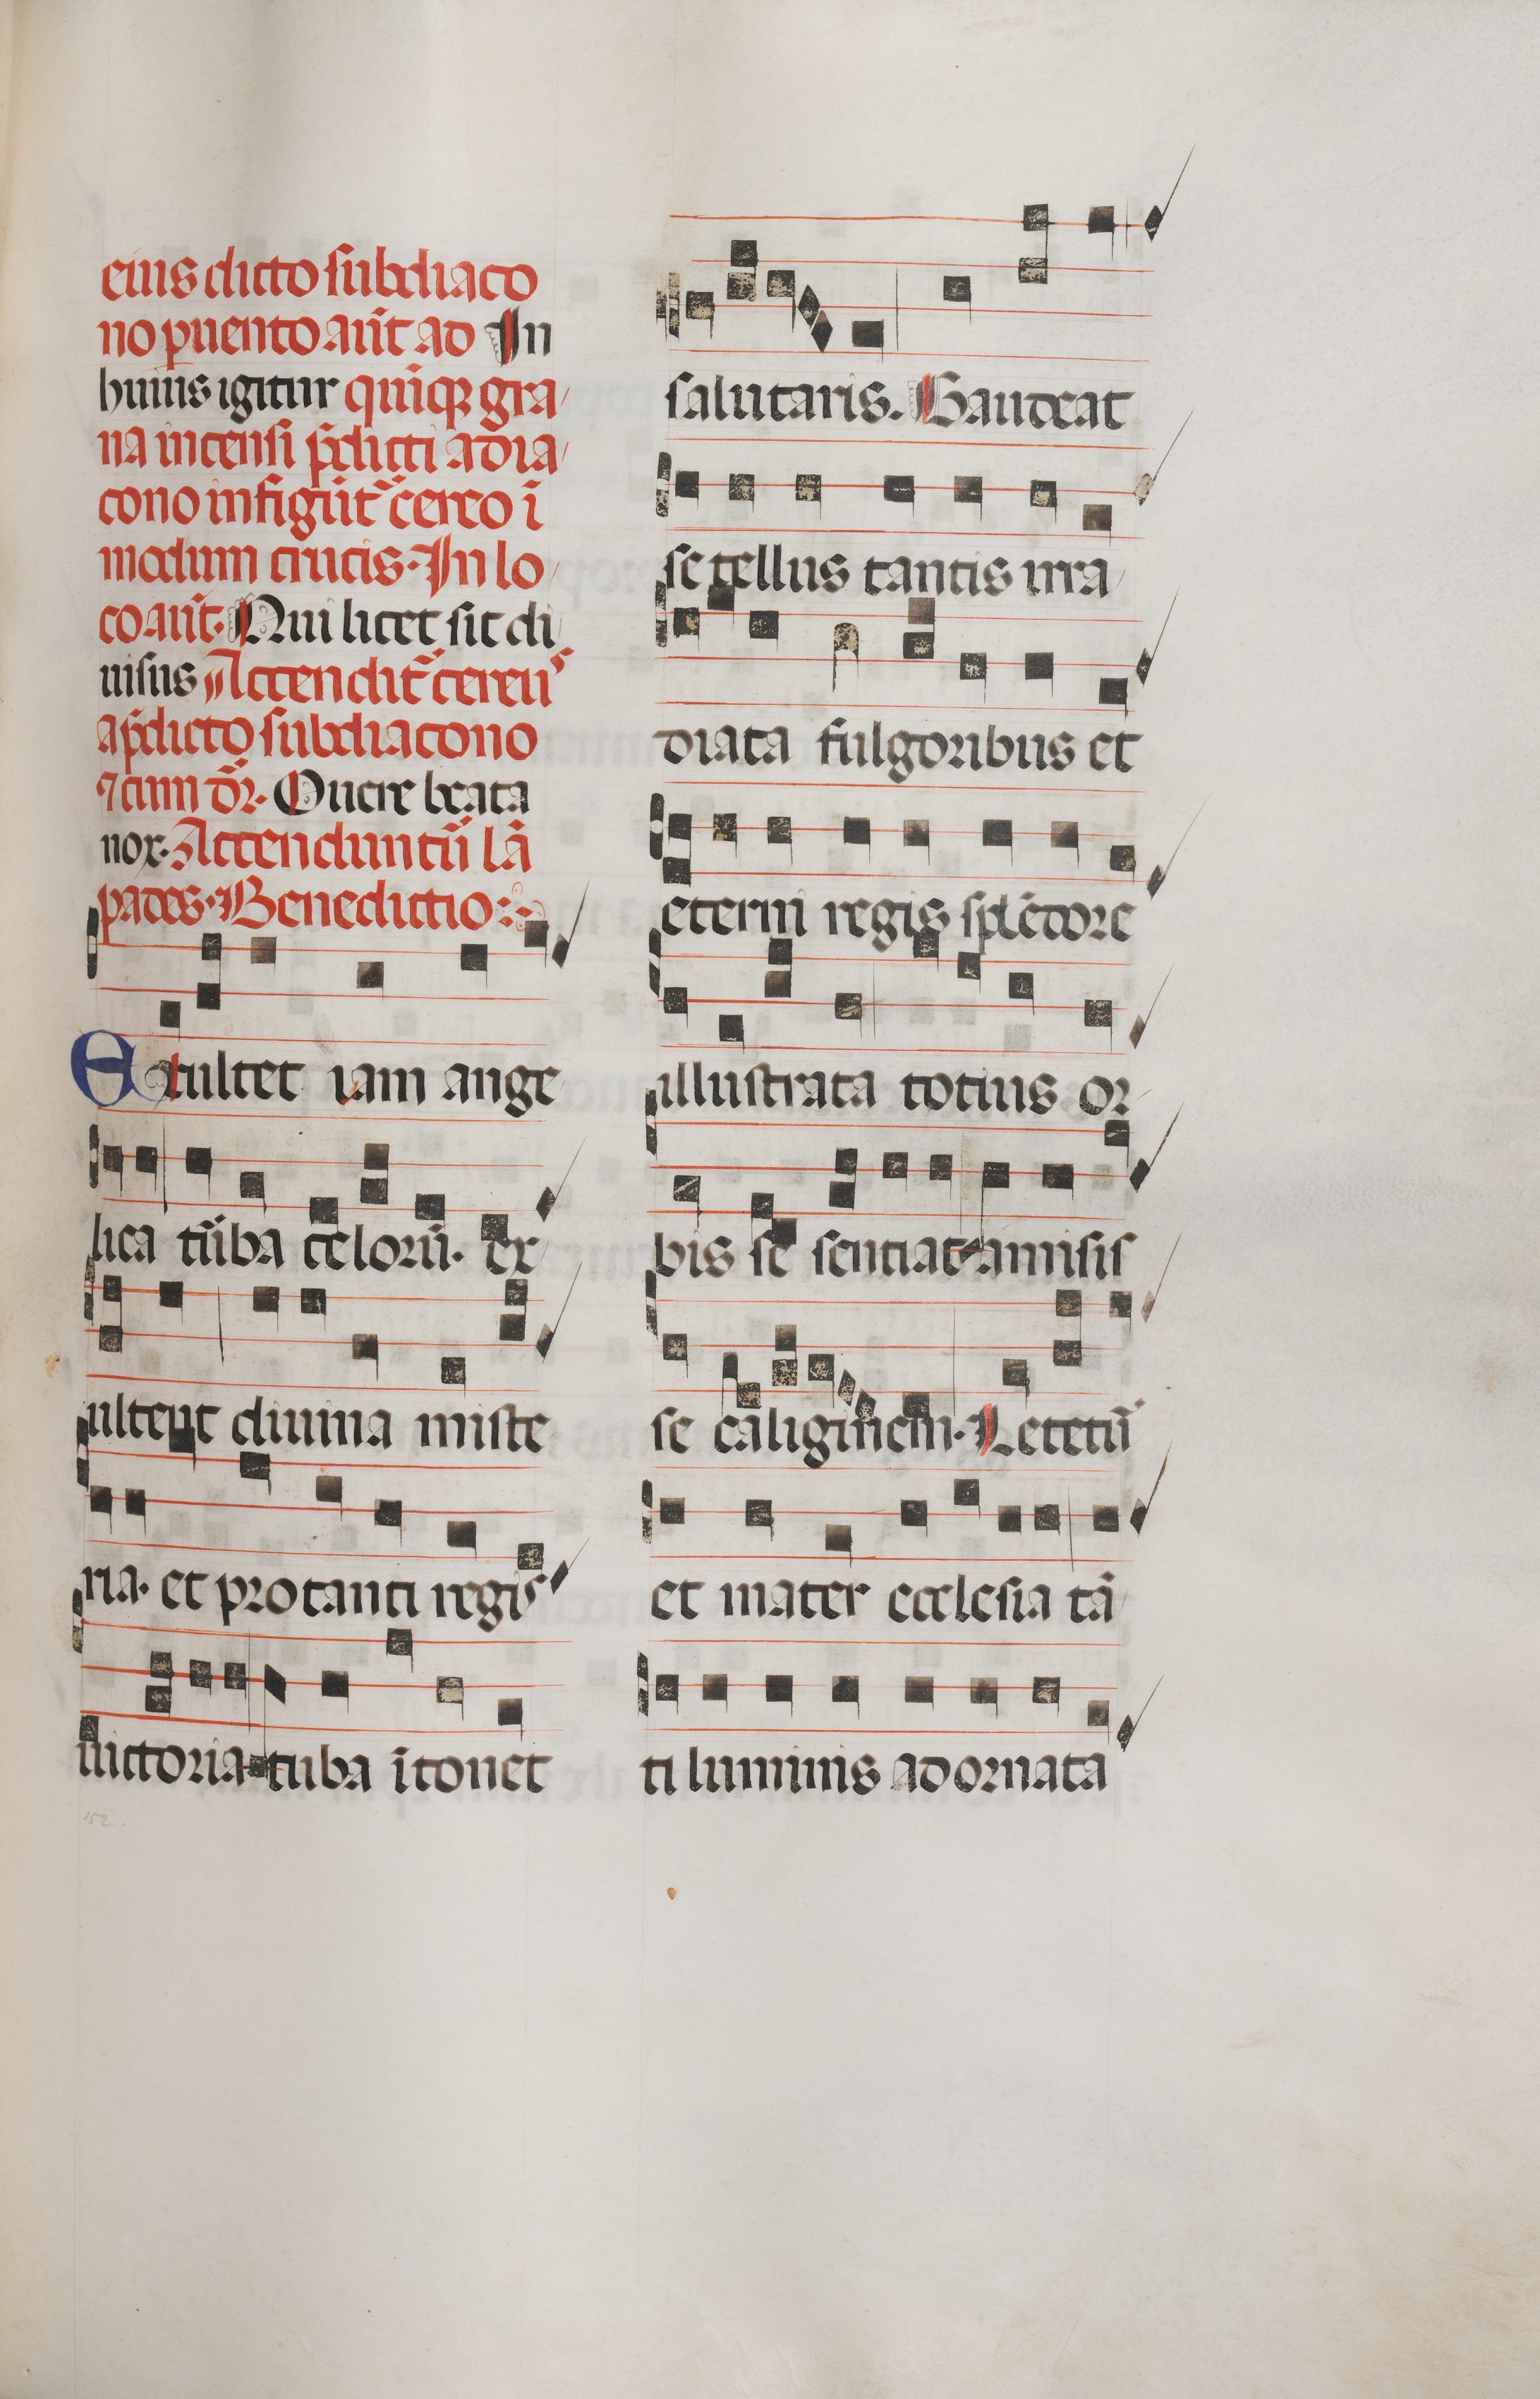 eius dicto subdiaco
no puento aūt ad In
huius igitur quīqꝫ gra
na incensi p̄dicti a dia
cono infigūt᷑ cereo ī
modum crucis. In lo
co aūt. Qui licet sit di
uisus Accendit᷑ cereus
a p̄dicto subdiacono
⁊ cum dr̄. O uere beata
nox. Accendunt᷑ lā
pades. Benedictio:
Exultet iam ange
lica tūba celorū. ex
ultent diuina miste
ria. et pro tanti regis
uictoria tuba ītonet
salutaris. Gaudeat
se tellus tantis irra
diata fulgoribus et
eterni regis splēdore
illustrata totius or
bis se sentiat amisis
se caliginem. Letet᷑
et mater ecclesia tā
ti luminis adornata
152.